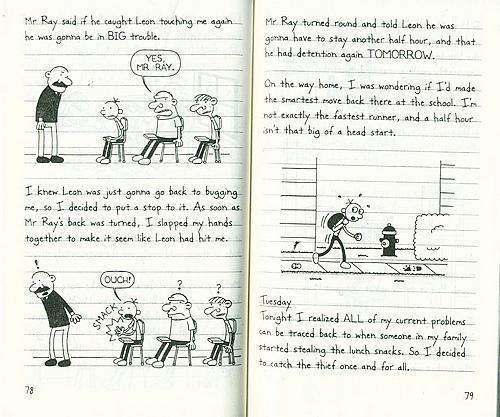 Mr Ray said if he caught Leon touching me again
he was gonna be in BIG trouble.
YES,
MR RAY.
I knew Leon was just gonna go back to bugging
me, so I decided to put a stop to it. As soon as
Mr Ray's back was turned, I slapped my hands
together to make it seem like Leon had hit me.
!
OUCH!
SMACK
?
?
78
Mr Ray turned round and told Leon he was
gonna have to stay another half hour, and that
he had detention again TOMORROW.
On the way home, I was wondering if I'd made
the smartest move back there at the school. I'm
not exactly the fastest runner, and a half hour
isn't that big of a head start.
Tuesday
Tonight I realized ALL of my current problems
can be traced back to when someone in my family
started stealing the lunch snacks. So I decided
to catch the thief once and for all.
79